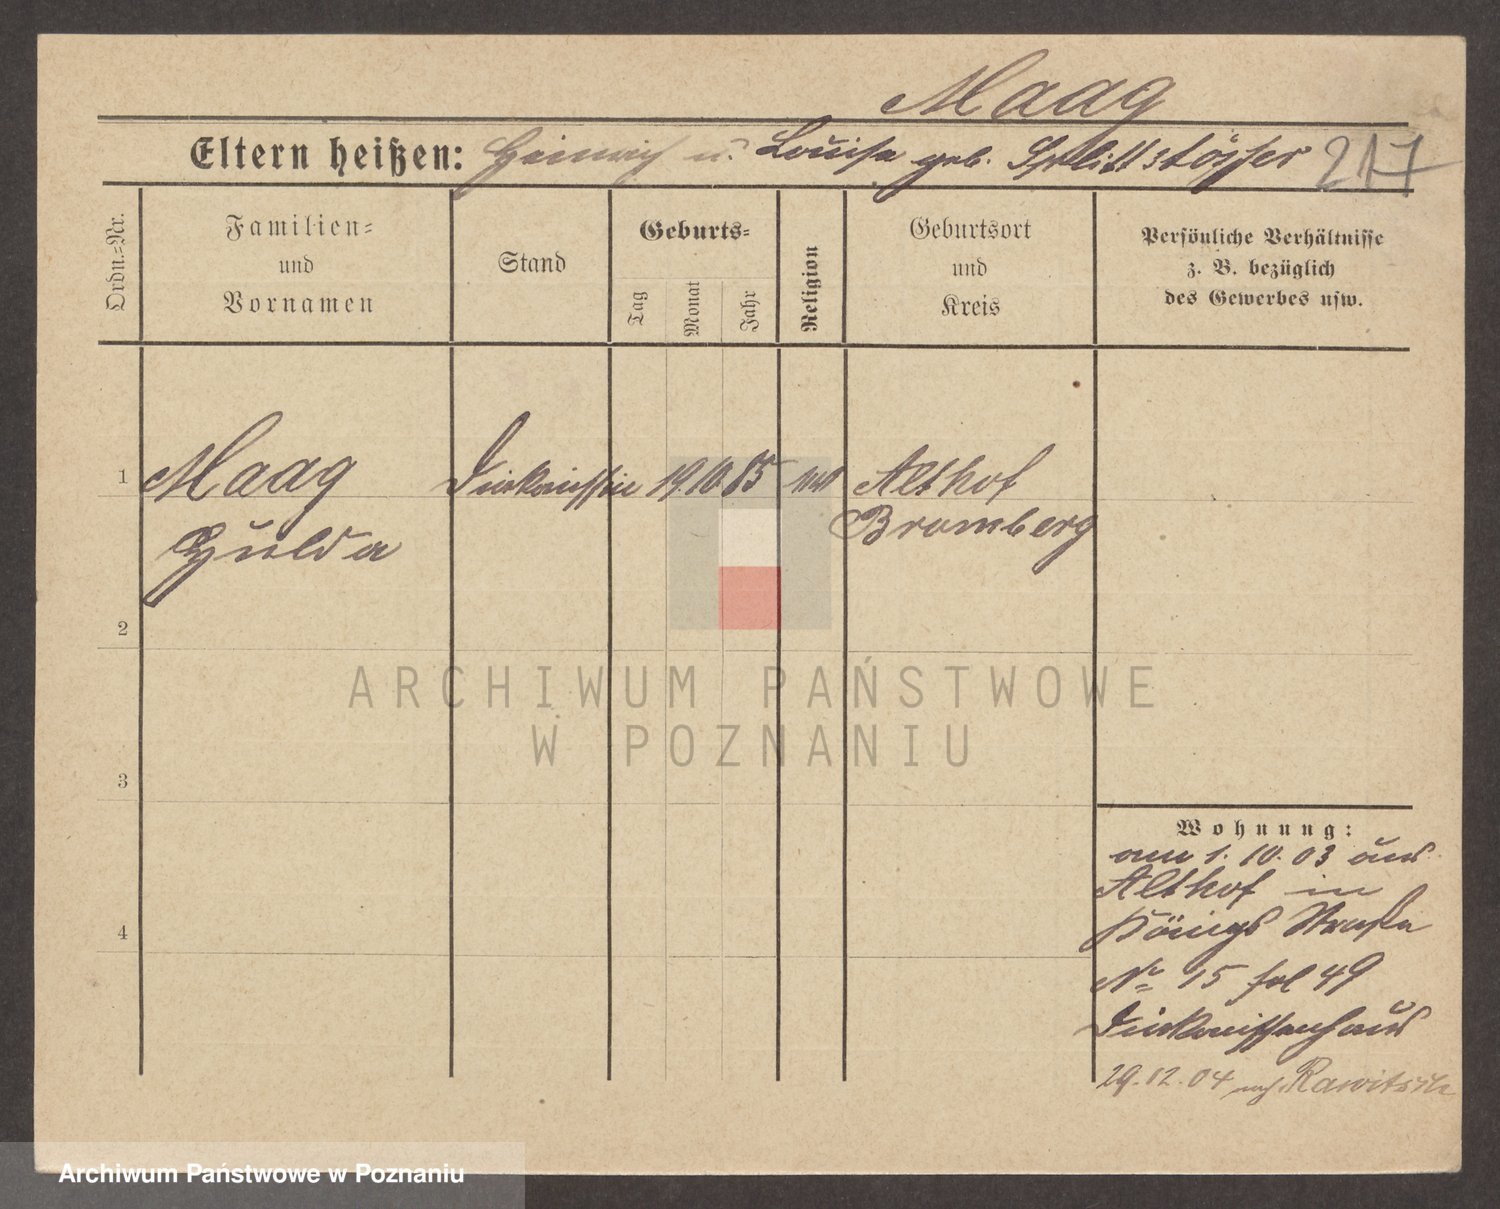 Maag
Eltern heißen: Heinrich u. Louise geb. Schlittstösser 217
Ordn.-Nr.
Familien-
und
Vornamen
Stand
Geburts-
Tag
Monat
Jahr
Religion
Geburtsort
und
Kreis
Persönliche Verhältnisse
z. B. bezüglich
des Gewerbes usw.
1 Maag Diakonissin 19. 10. 85 Althof
Hulda Bromberg
2
3
4
Wohnung:
am 1. 10. 03 aus
Althof in
Königs Straße
No 15 fol 49
Diakonissenhaus
29.12.04 nach Rawitsch
ARCHIWUM PAŃSTWOWE
W POZNANIU
Archiwum Państwowe w Poznaniu